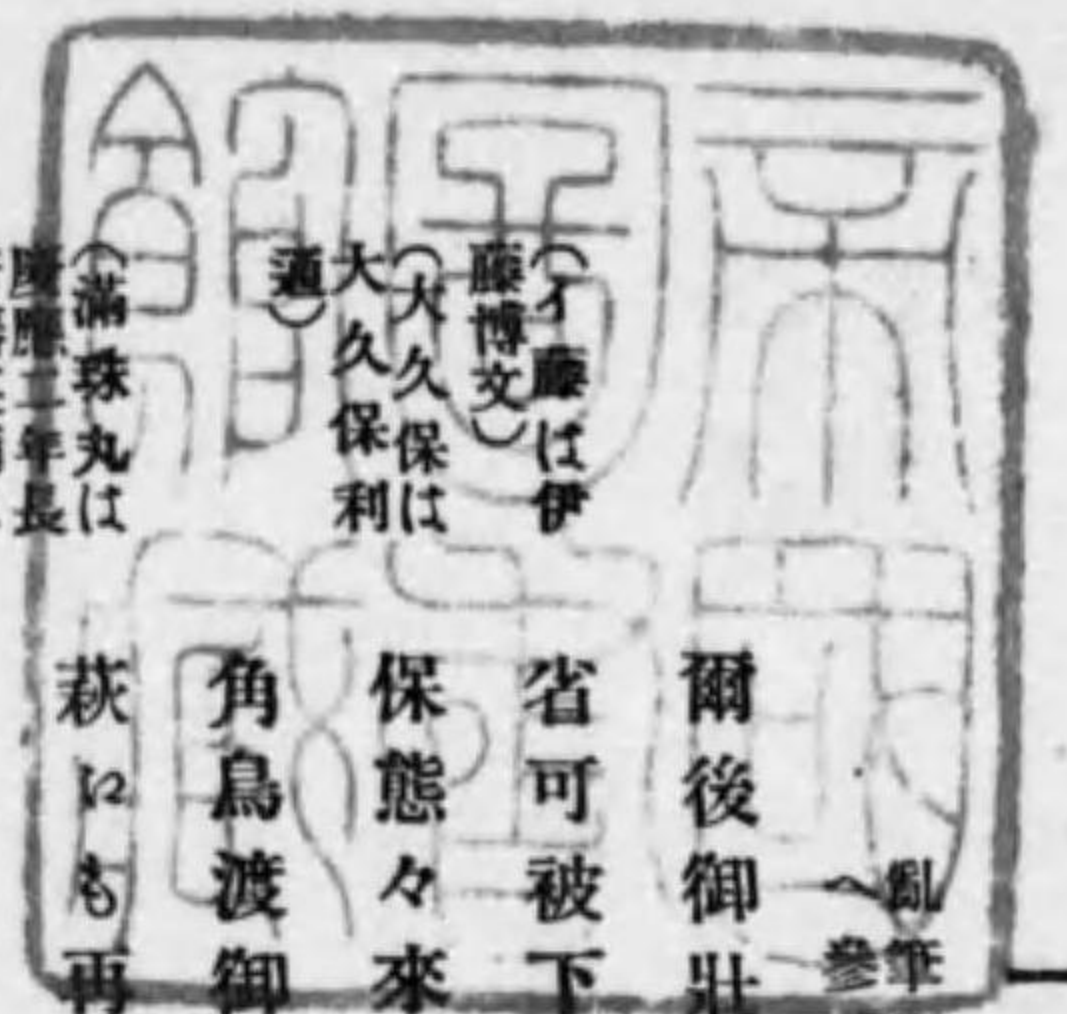 (イ藤は伊
藤博文)
(大久保は
大久保利
通)
(滿珠丸は
慶應二年長
亂筆
參
爾後御壯
省可被下
保態々來
角鳥渡御
萩にも再